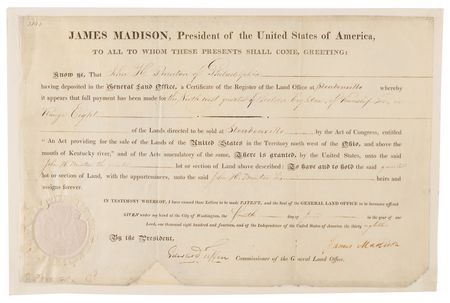 JAMES MADISON, President of the United States of America,
TO ALL TO WHOM THESE PRESENTS SHALL COME, GREETING:
Know ye, That John H. of Philadelphia
having deposited in the General Land Office, a Certificate of the Register of the Land Office at Steubenville whereby
it appears that full payment has been made for the North west quarter of Section of Township in
Range Eight
of the Lands directed to be sold at Steubenville by the Act of Congress, entitled
"An Act providing for the sale of the Lands of the United States in the Territory north west of the Ohio, and above the
mouth of Kentucky river;" and of the Acts amendatory of the same, There is granted, by the United States, unto the said
John H. the quarter lot or section of Land above described: To have and to hold the said quarter
lot or section of Land, with the appurtenances, unto the said John H. his heirs and
assigns forever.
IN TESTIMONY WHEREOF, I have caused these Letters to be made PATENT, and the Seal of the GENERAL LAND OFFICE to be hereunto affixed.
GIVEN under my hand at the City of Washington, the day of in the year of our
Lord, one thousand eight hundred and fourteen, and of the Independence of the United States of America the thirty eighth
By the President, James Madison
Edward Tiffin Commissioner of the General Land Office.